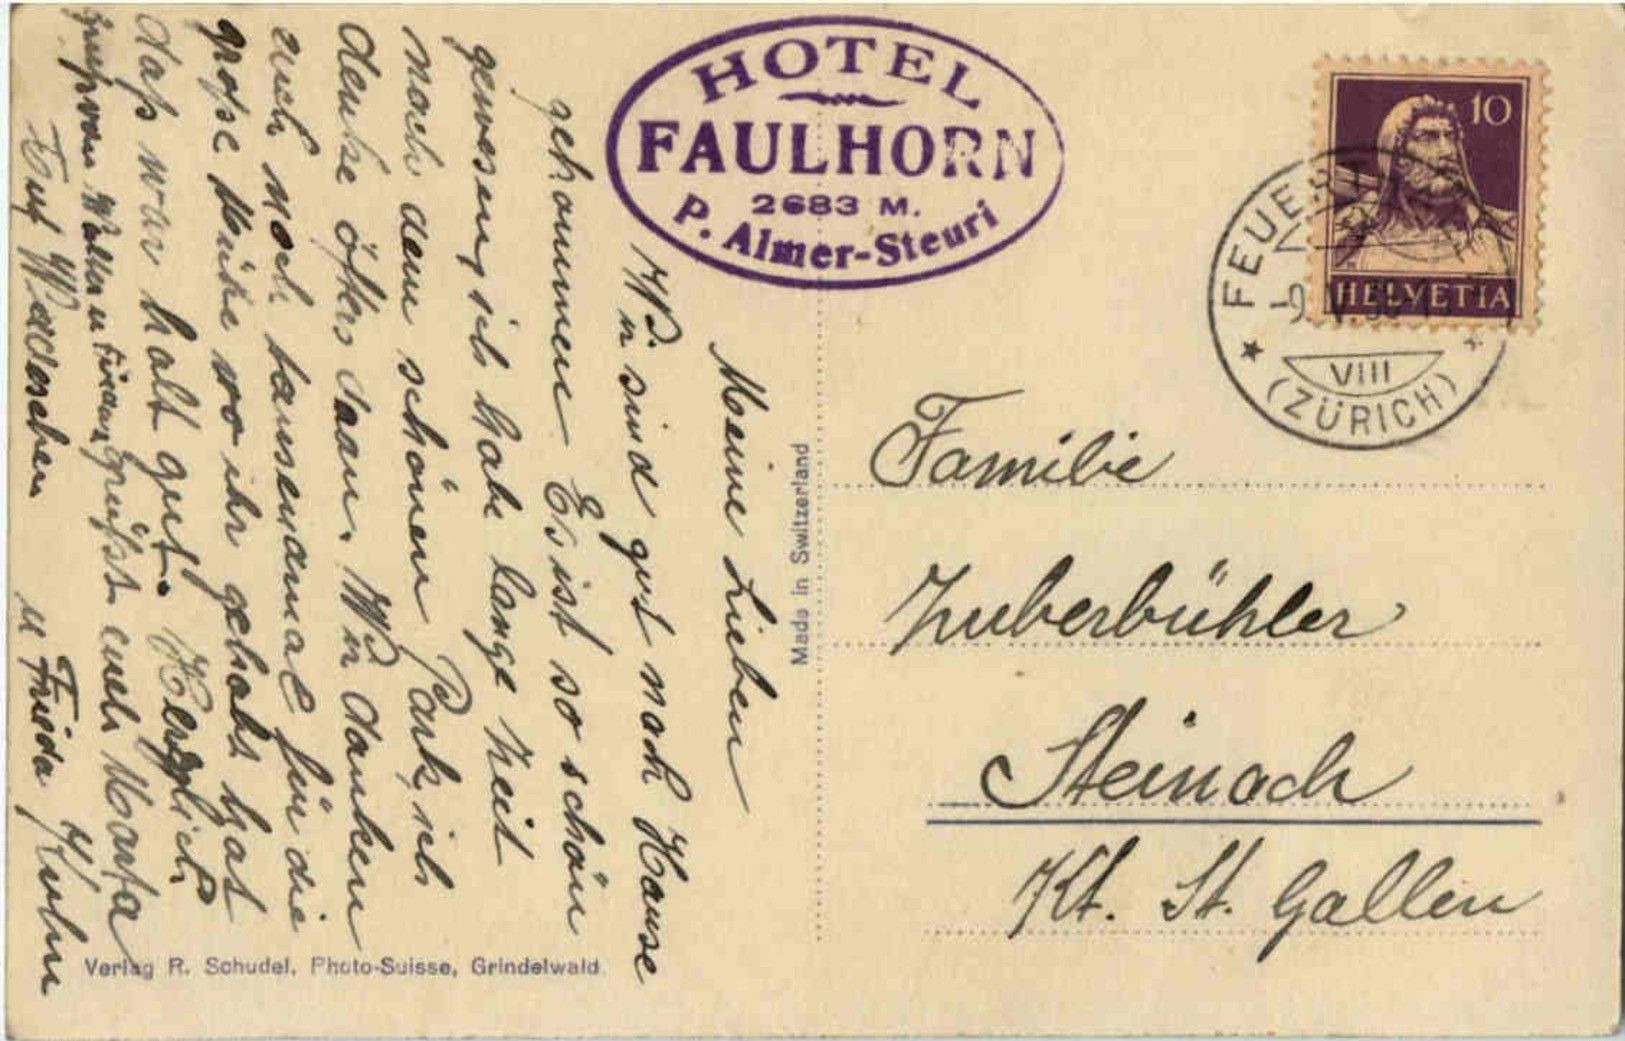 HOTEL
FAULHORN
2683 M.
P. Almer-Steuri
10
HELVETIA
FEUERT
VIII
(ZÜRICH)
Meine Lieben
Wir sind gut nach Hause
gekommen Es ist so schön
gewesen, ich habe lange Zeit
nach dem schönen Park, ich
denke öfters daran. Wir danken
euch noch tausendmal für die
grosse Mühe wo ihr gehabt habt
das war halt gut. Herzlich
grüsst euch Marta
Auf Wiedersehen u Frieda Kuhn
Made in Switzerland
Verlag R. Schudel, Photo-Suisse, Grindelwald
Familie
Zuberbühler
Steinach
Kt. St. Gallen